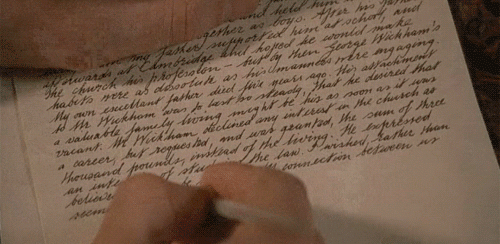 and held him in
together as boys. After his father
my father supported him at school, and
afterwards at Cambridge and hoped he would make
the church his profession – but by then George Wickham's
habits were as dissolute as his manners were engaging.
My own excellent father died five years ago. His attachment
to Mr Wickham was to last so steady, that he desired that
a valuable family living might be his as soon as it was
vacant. Mr Wickham declined any interest in the church as
a career, but requested, and was granted, the sum of three
thousand pounds, instead of the living. He expressed
an inte of stud the law. I wished, rather than
believe
seem connection between us